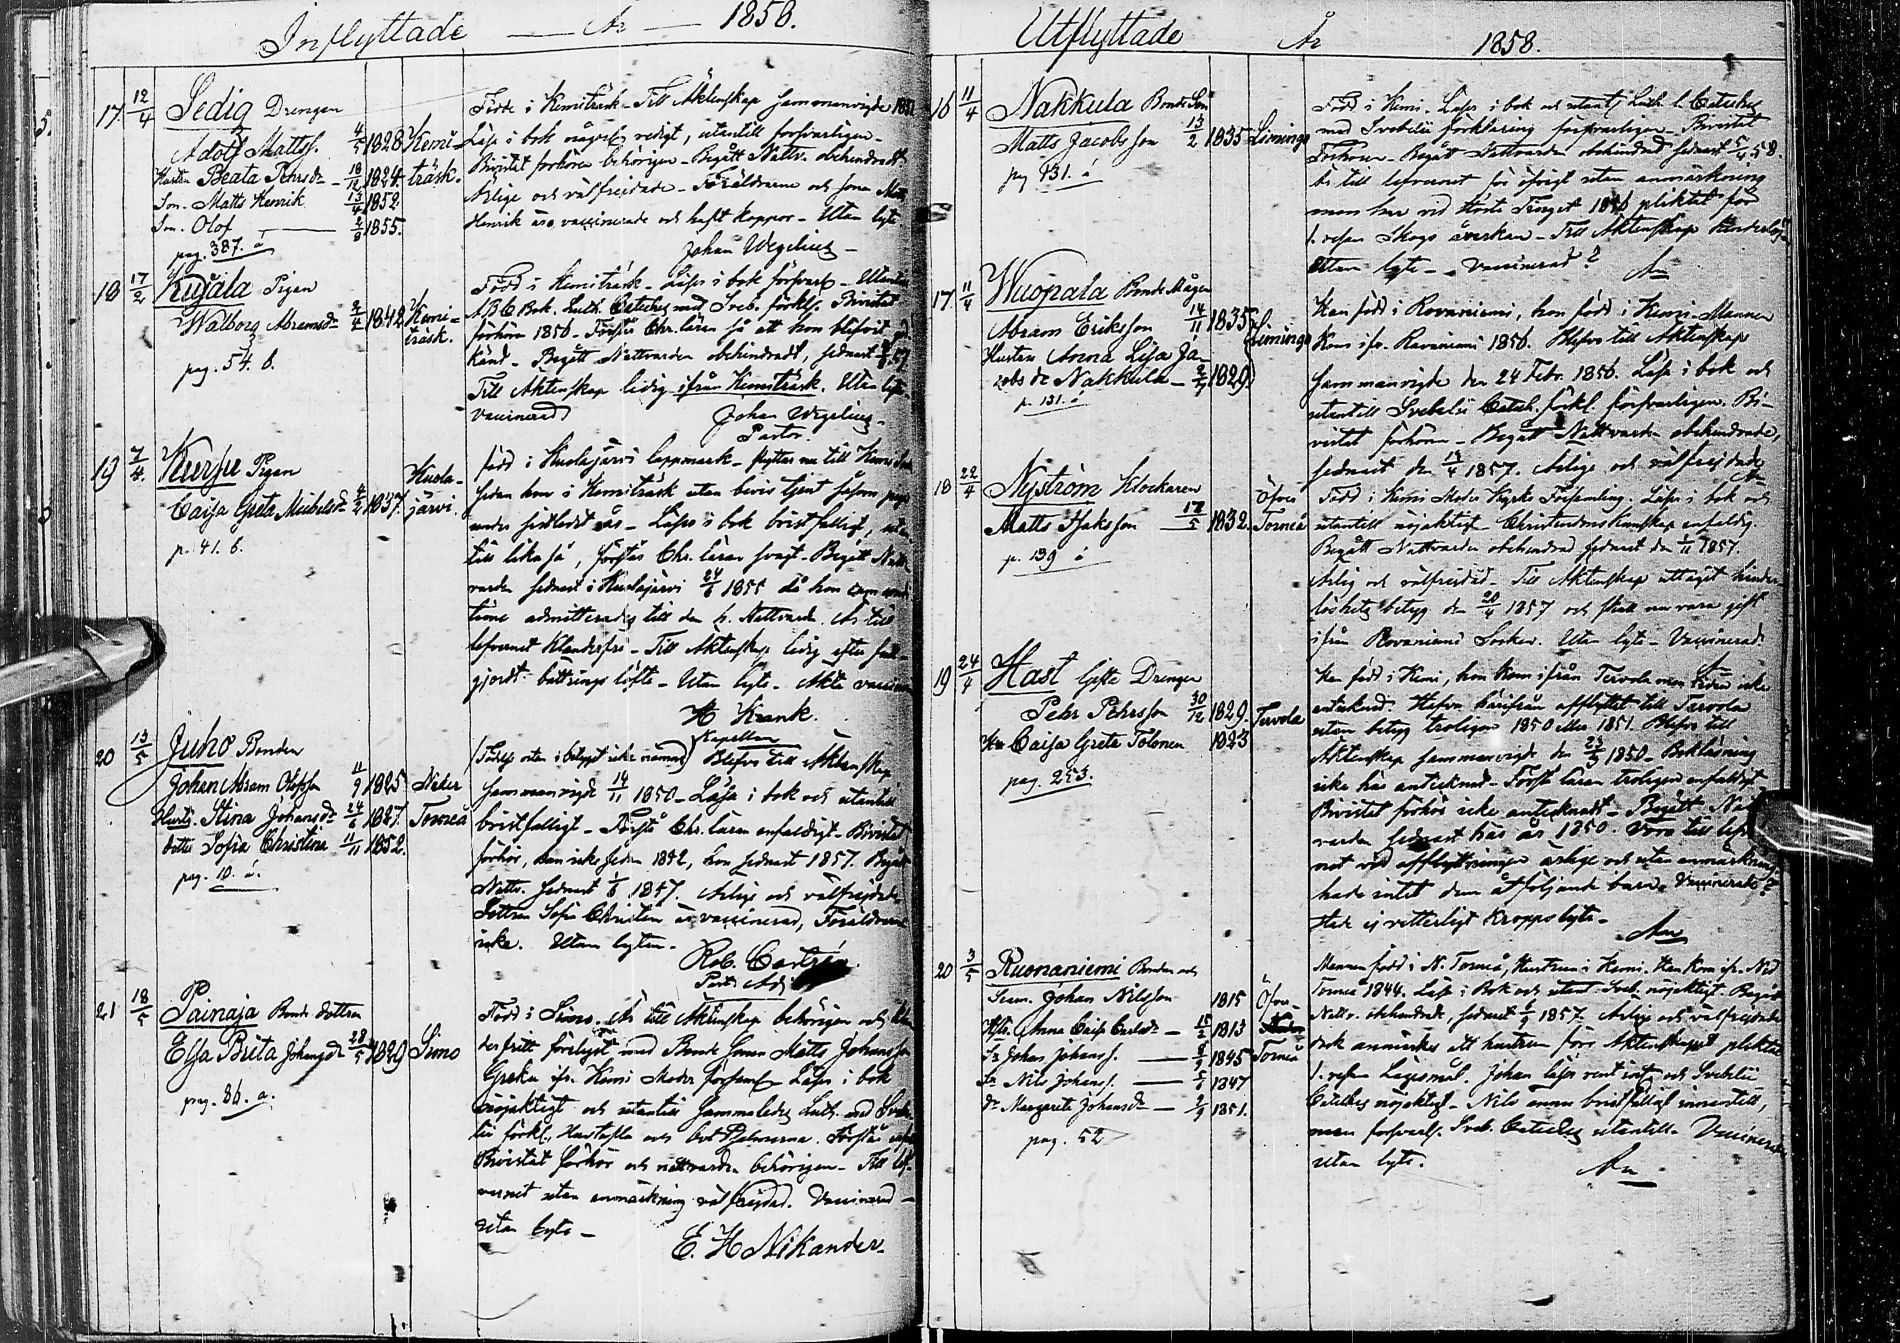 Inflyttade År 1858.
17 12/4 Sedig Drengen
Adolf Mattss. 4/5 1828 Kemi-
Hustru Beata Pehrsdr 18/12 1824. träsk.
Son Matts Henrik 13/4 1852
Son Olof 2/8 1855.
pag. 387. á
Född i Kemiträsk. Till Äktenskap sammanvigde 1851
Läse i bok någorlunda redigt, utantill försvarligen.
Bivistat förhören behörigen. Begått Nattv. obehindradt
Ärlige och välfrejdade. Föräldrarne och sonen Matts
Henrik äro vaccinerade och haft koppor. Utan lyte.
Johan Wegelius
18 17/2 Kujala Pigan
Walborg Abramsdr 2/4 1842 Kemi-
träsk.
pag. 54. b.
Född i Kemiträsk. Läser i bok försvarl. Utantill
ABC Bok. Luth. Cateches med Sveb. förkl. Bivistat
förhören 1856. Förstår Chr. läran så att hon blifvit
känd. Begått Nattvarden obehindradt, sednast 57
Till Äktenskap ledig ifrån Kemiträsk. Utan lyte.
vaccinerad
Johan Wegelius
Pastor.
19 7/4 Kurju Pigan
Caisa Greta Michelsdr 4/2 1837. Kuola-
järvi.
p. 41. b.
född i Kuolajärvi lappmark. flyttar nu till Kemi
sedan hon i Kemiträsk utan bevis tjent såsom piga
under sistledit år. Läser i bok bristfälligt, utan-
till lika så, förstår Chr. läran svagt. Begått Natt-
varden sednast i Kuolajärvi 24/6 1855 då hon
admitterades till den h. Nattvard. Är till
lefvernet klanderfri. Till Äktenskap ledig efter full-
gjordt bättrings löfte. Utan lyte. Äkta vaccinerad
H Krank.
Kapellan
20 13/5 Juho Bonden
Johan Abram Olofsson 11/9 1825 Neder
Hustr. Stina Johansdr 24/6 1827. Torneå
dotter Sofia Christina 11/11 1852.
pag. 10. á.
(Födelse orten i betyget icke nämnd) Blefvo till Äktenskap
sammanvigde 14/11 1850. Läsa i bok och utantill
bristfälligt. Förstå Chr. läran enfaldigt. Bivistat
förhör, han icke sedan 1852, hon sednast 1857. Begått
Nattv. sednast 1/6 1857. Ärlige och välfrejdade
Dottren Sofia Christina är vaccinerad, Föräldrarne
icke. Utan lyten.
Rob. Castrén
Past. Adj.
21 18/5 Painaja Bonde dottren
Elsa Brita Johansdr 28/5 1829 Simo
pag. 86. a.
Född i Simo. Är till Äktenskap behörigen och
derfritt förelyst med Bonde Sonen Matts Johansson
Greku ifr. Kemi Moder församl. Läser i bok
nöjaktigt och utantill Gammaledes Luth. med Svebi-
lii förkl., Hustafla och bot Psalmerna. Förstår
Bivistat förhör och nattvarden behörigen. Till lef-
vernet utan anmärkning välfrejdad. Vaccinerad
utan lyte.
E. H Nikander
Utflyttade År 1858.
16 11/4 Nakkula Bonde Son
Matts Jacobsson 13/2 1835 Limingo
pag 131. á
Född i Kemi. Läser i bok och utantill Luth. l. Cateches
med Svebelii förklaring försvarligen. Bivistat
Förhören. Begått Nattvarden obehindrad sednast 5/4 58
är till lefvernet för öfrigt utan anmärkning
men har vid Höste Tinget 1856 pliktat för
1. resan Skogs åverkan. Till Äktenskap hinderlös.
Utan lyte. Vaccinerad?
17 11/4 Wuopala Bonde Mågen
Abram Eriksson 14/11 1835 Limingo
Hustru Anna Lisa Ja-
cobs dr Nakkula 2/7 1829
p. 131. á
Han född i Rovaniemi, hon född i Kemi. Mannen
Kom ifr. Rovaniemi 1856. Blefvo till Äktenskap
sammanvigde den 24 Febr. 1856. Läse i bok och
utantill Svebelii Catech. förkl. försvarligen. Bi-
vistat förhören. Begått Nattvarden obehindrade,
sednast den 13/4 1857. Ärlige och välfrejdade
18 22/4 Nyström Klockaren Öfver
Matts Isaksson 17/5 1832. Torneå
p. 139 á
Född i Kemi Moder Kyrko Församling. Läser i bok och
utantill nöjaktigt. Christendomskunskap enfaldig.
Begått Nattvarden obehindrad sednast den 1/11 1857
Ärlig och välfrejdad. Till Äktenskap uttagit hinder-
löshets betyg den 20/4 1857 och skall nu vara gift
ifrån Rovaniemi Socken. Utan lyte. Vaccinerad.
19 24/4 Hast Gifte Drengen
Pehr Pehrsson 30/12 1829. Tervola
Hu Caisa Greta Tolonen 1823
pag. 253.
Han född i Kemi, hon kom ifrån Tervola men icke
antecknad. Hafva härifrån afflyttat till Tervola
utan betyg troligen 1850 eller 1851. Blefvo till
Äktenskap sammanvigde den 1850. Bekläsning
icke här antecknad. Förstå läran troligen enfaldigt.
Bivistat förhör icke antecknadt. Begått Natt-
varden sednast här år 1850. Voro till lefver-
net vid afflyttningen ärlige och utan anmärkning
hade intet dem åtföljande barn. Vaccinerade?
Hade ej vetterligt kropps lyte.
20 3/5 Ruonaniemi Bonden och
Svm. Johan Nilsson 1815 Öfver-
Hstr. Anna Caisa Carlsdr 15/2 1813
Sn Johan Johanss. 1845 Torneå
Sn Nils Johanss. 5/6 1847
dr Margareta Johansdr 2/9 1851.
pag. 52
Mannen född i N. Torneå, Hustrun i Kemi. Han kom ifr. Ned
Torneå 1844. Läse i Bok och utant. Sveb. nöjaktigt. Begått
Nattv. obehindrade, sednast 1857. Ärlige och välfrejdade
dock anmärkes att hustrun före Äktenskapet pliktat
1. resan Lägersmål. Johan läser rent int. och Svebelii
Cateches nöjaktigt. Nils ännu bristfälligt innantill,
men försvarl. Sveb. Cateches utantill. Vaccinerade
utan lyte.